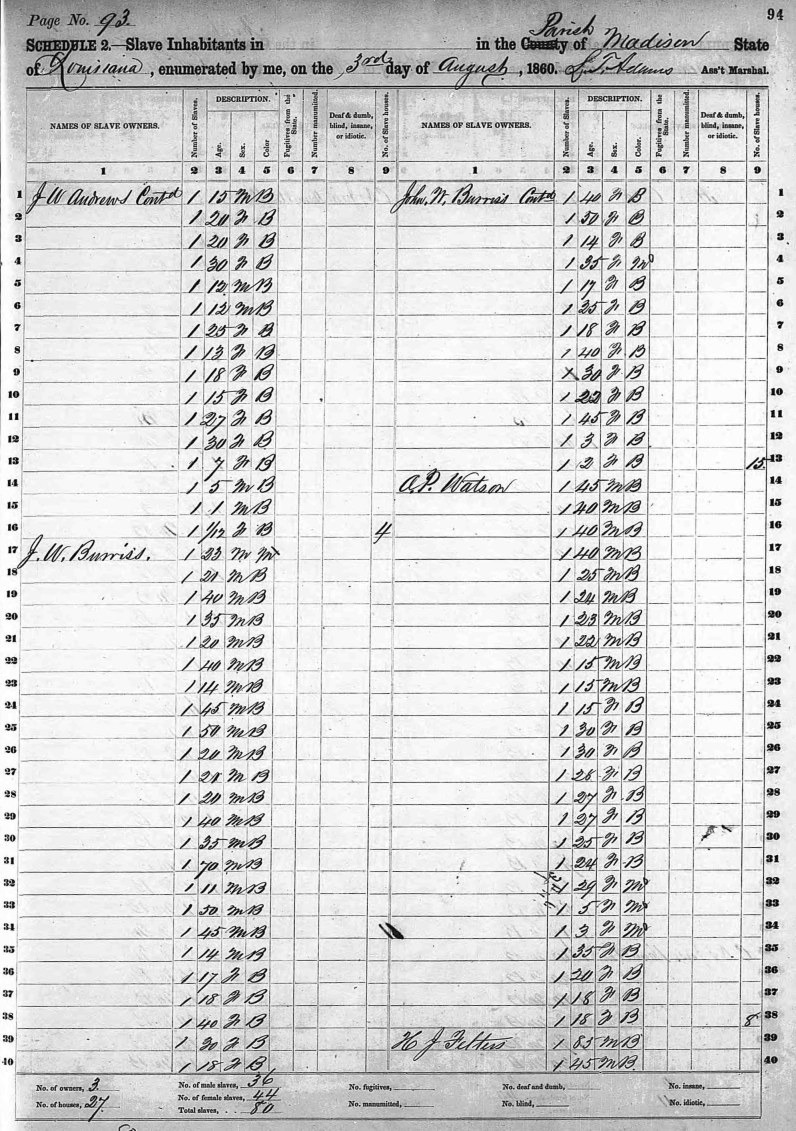 Page No. 93.
94
SCHEDULE 2.—Slave Inhabitants in in the County Parish of Madison State
of Louisiana, enumerated by me, on the 3rd day of August, 1860. Adams Ass't Marshal.
NAMES OF SLAVE OWNERS. Number of Slaves. DESCRIPTION. Age. Sex. Color Fugitives from the State. Number manumitted. Deaf & dumb, blind, insane, or idiotic. No. of Slave houses. NAMES OF SLAVE OWNERS. Number of Slaves. DESCRIPTION. Age. Sex. Color. Fugitives from the State. Number manumitted. Deaf & dumb, blind, insane, or idiotic. No. of Slave houses.
1 2 3 4 5 6 7 8 9 1 2 3 4 5 6 7 8 9
1 J W Andrews Contd 1 15 M B John, W. Burriss Contd 1 40 F B 1
2 1 20 F B 1 50 F B 2
3 1 20 F B 1 14 F B 3
4 1 30 F B 1 35 F M 4
5 1 12 M B 1 17 F B 5
6 1 12 M B 1 25 F B 6
7 1 25 F B 1 18 F B 7
8 1 13 F B 1 40 F B 8
9 1 18 F B 1 30 F B 9
10 1 15 F B 1 22 F B 10
11 1 27 F B 1 45 F B 11
12 1 30 F B 1 3 F B 12
13 1 7 F B 1 2 F B 15 13
14 1 5 M B A. P. Watson 1 45 M B 14
15 1 1 M B 1 40 M B 15
16 1 1/12 F B 4 1 40 M B 16
17 J. W. Burriss. 1 23 M M 1 40 M B 17
18 1 21 M B 1 25 M B 18
19 1 40 M B 1 24 M B 19
20 1 35 M B 1 23 M B 20
21 1 20 M B 1 22 M B 21
22 1 40 M B 1 15 M B 22
23 1 14 M B 1 15 M B 23
24 1 45 M B 1 15 F B 24
25 1 50 M B 1 30 F B 25
26 1 20 M B 1 30 F B 26
27 1 21 M B 1 28 F B 27
28 1 20 M B 1 27 F B 28
29 1 40 M B 1 27 F B 29
30 1 35 M B 1 25 F B 30
31 1 70 M B 1 24 F B 31
32 1 11 M B 1 29 F M 32
33 1 50 M B 1 5 F M 33
34 1 45 M B 1 3 F M 34
35 1 14 M B 1 35 F B 35
36 1 17 F B 1 20 F B 36
37 1 18 F B 1 18 F B 37
38 1 40 F B 1 18 F B 8 38
39 1 30 F B H J Felters 1 85 M B 39
40 1 18 F B 1 45 M B 40
No. of owners, 3. No. of male slaves, 36 No. fugitives, No. deaf and dumb, No. insane,
No. of houses, 27. No. of female slaves, 44 No. manumitted, No. blind, No. idiotic,
Total slaves, 80